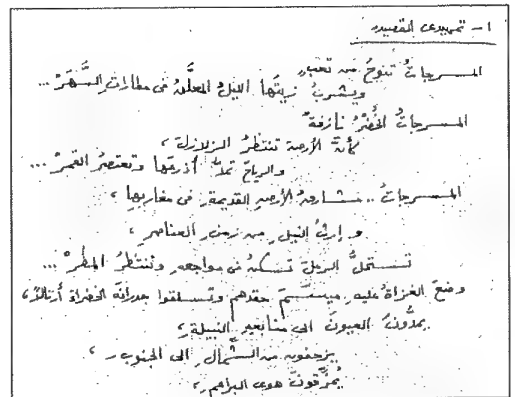 ١ - تمهيدى القصيدة
المسرجاتُ تنوحُ من تعبٍ
ويشربُ زيتَها الليلُ المعلَّقُ فى مطاراتِ السَّهَرْ ...
المسرجاتُ الخُضْرُ نازفةٌ
كأنَّ الأرصة تنتظرُ الزلازلَ ،
والرياحَ تمدُّ أذرعَها وتعتصرُ القمرْ ...
المسرجاتُ .. مشارقُ الأرضِ القديمةِ فى مغاربِها ،
وإرثُ النيلِ من زمنِ العناصرِ ،
تستحلُّ الرملَ تسكنُ فى مواجعهِ وتنتظرُ المطرْ ...
وضعَ الغزاةُ عليهِ ميسمَ حقدهم وتسلقوا جدرانَه الخضراءَ أرتالًا ،
يمدُّونَ العيونَ الى منابعهِ النبيلةِ ،
يزحفون من الشَّمالِ الى الجنوبِ ،
يُمزِّقونَ هوى البراعمِ ،